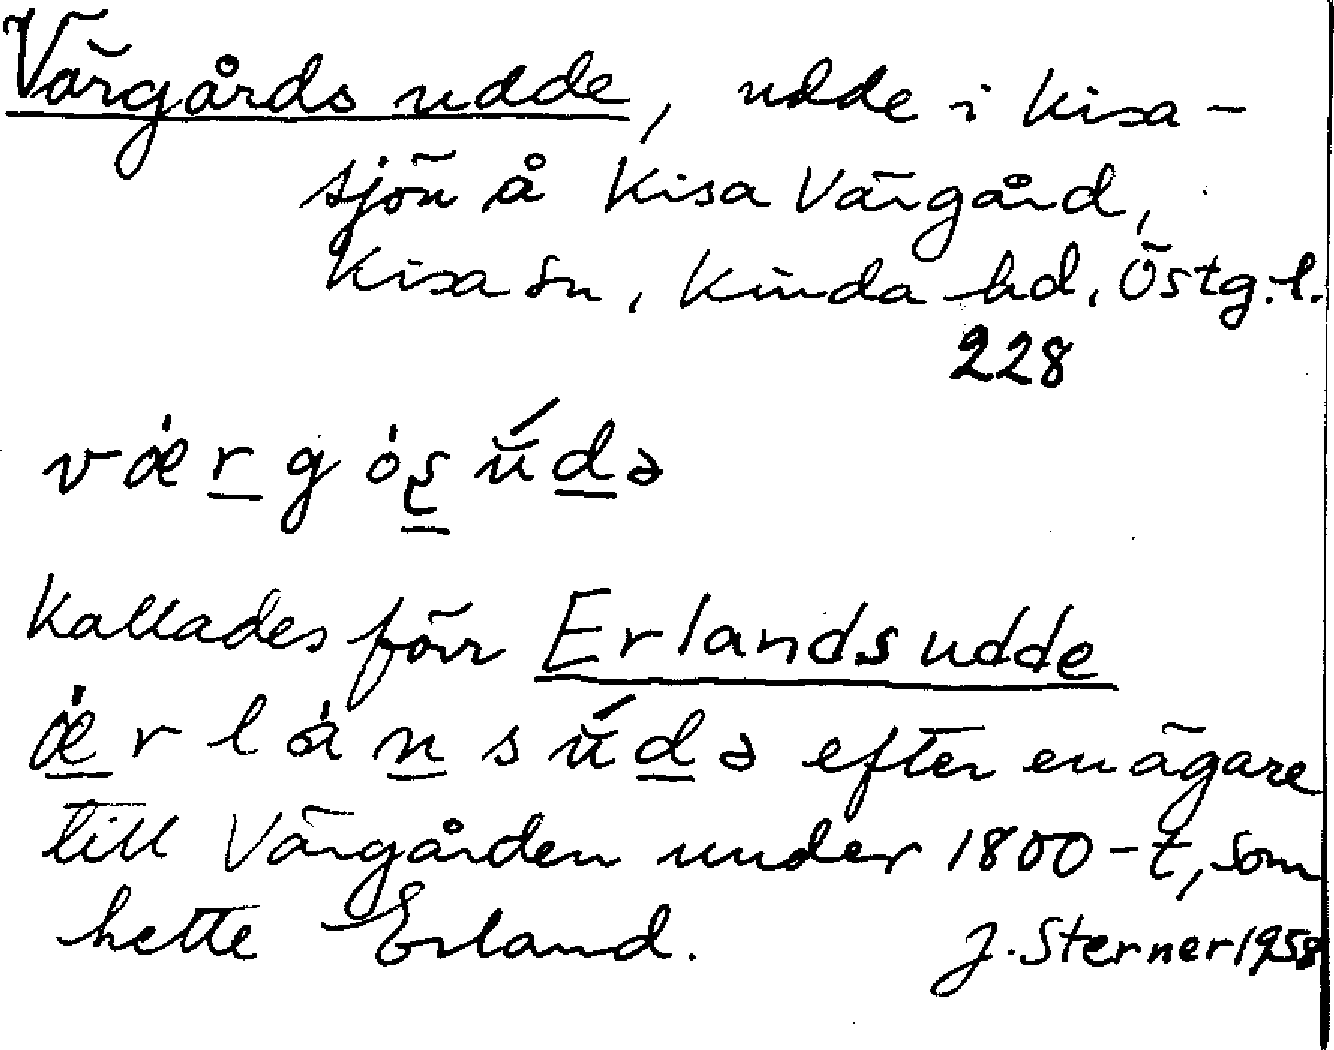 Värgårds udde, udde i Kisa-
sjön å Kisa Värgård,
Kisa sn, Kinda hd, Östg. l.
228
kallades förr Erlandsudde
efter en ägare
till Värgården under 1800-t, som
hette Erland. J. Sterner 1958